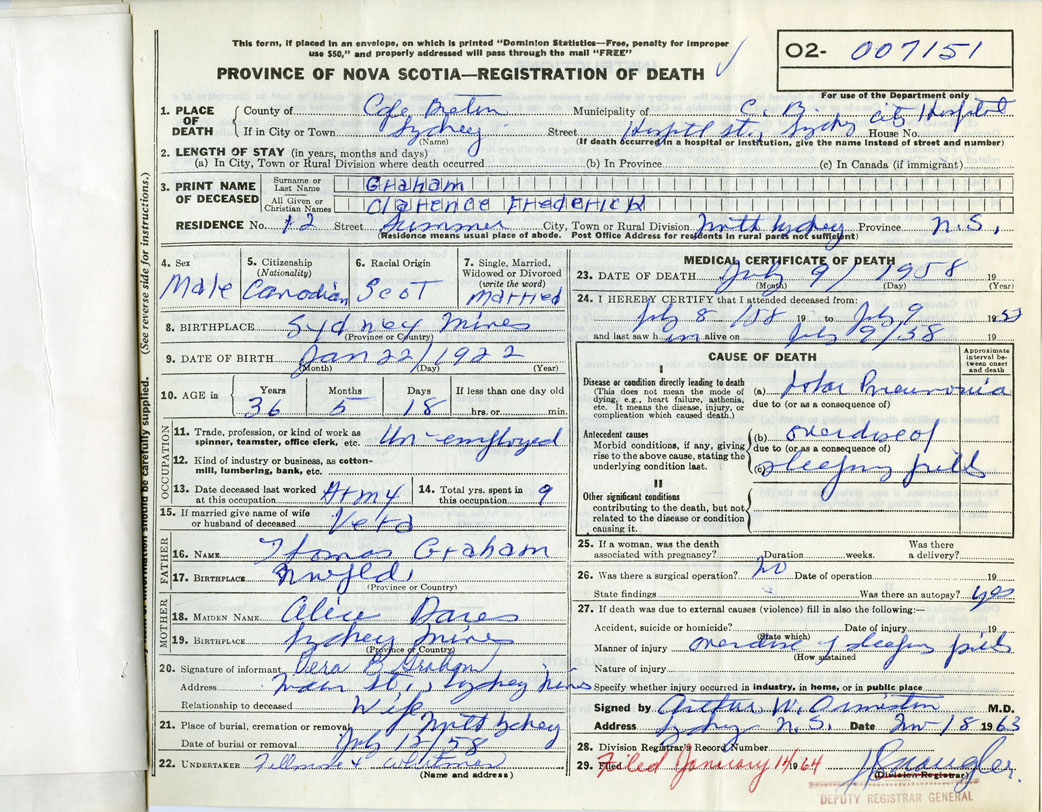 This form, if placed in an envelope, on which is printed "Dominion Statistics—Free, penalty for improper
use $50," and properly addressed will pass through the mail "FREE"
PROVINCE OF NOVA SCOTIA—REGISTRATION OF DEATH
O2- 007151
For use of the Department only
1. PLACE OF DEATH
County of Cape Breton Municipality of C. B. City Hospital
If in City or Town Sydney Street Hospital St., Sydney House No.
(Name) (If death occurred in a hospital or institution, give the name instead of street and number)
2. LENGTH OF STAY (in years, months and days)
(a) In City, Town or Rural Division where death occurred (b) In Province (c) In Canada (if immigrant)
3. PRINT NAME OF DECEASED
Surname or Last Name Graham
All Given or Christian Names Clarence Frederick
RESIDENCE No. 12 Street Summer City, Town or Rural Division North Sydney Province N.S.
(Residence means usual place of abode. Post Office Address for residents in rural parts not sufficient)
(See reverse side for instructions.)
information should be carefully supplied.
4. Sex
Male
5. Citizenship
(Nationality)
Canadian
6. Racial Origin
Scot
7. Single, Married,
Widowed or Divorced
(write the word)
Married
8. BIRTHPLACE Sydney Mines
(Province or Country)
9. DATE OF BIRTH Jan 22/1922
(Month) (Day) (Year)
10. AGE in
Years Months Days If less than one day old
36 5 18 hrs. or min.
OCCUPATION
11. Trade, profession, or kind of work as
spinner, teamster, office clerk, etc. Un-employed
12. Kind of industry or business, as cotton-
mill, lumbering, bank, etc.
13. Date deceased last worked
at this occupation Army
14. Total yrs. spent in
this occupation 9
15. If married give name of wife
or husband of deceased Vera
FATHER
16. NAME Thomas Graham
17. BIRTHPLACE Nwfld.
(Province or Country)
MOTHER
18. MAIDEN NAME Alice Dares
19. BIRTHPLACE Sydney Mines
(Province or Country)
20. Signature of informant Vera B Graham
Address Main St., Sydney Mines
Relationship to deceased Wife
21. Place of burial, cremation or removal North Sydney
Date of burial or removal July 12/58
22. UNDERTAKER Fillmore & Whitman
(Name and address)
MEDICAL CERTIFICATE OF DEATH
23. DATE OF DEATH July 9/ 1958 19
(Month) (Day) (Year)
24. I HEREBY CERTIFY that I attended deceased from:
July 8/58 19 to July 9 19
and last saw h im alive on July 9/58 19
CAUSE OF DEATH
Approximate interval between onset and death
I
Disease or condition directly leading to death
(This does not mean the mode of
dying, e.g., heart failure, asthenia,
etc. It means the disease, injury, or
complication which caused death.)
(a) Lobar Pneumonia
due to (or as a consequence of)
Antecedent causes
Morbid conditions, if any, giving
rise to the above cause, stating the
underlying condition last.
(b) overdose of
due to (or as a consequence of)
(c) sleeping pills
II
Other significant conditions
contributing to the death, but not
related to the disease or condition
causing it.
25. If a woman, was the death
associated with pregnancy? Duration weeks. Was there
a delivery?
26. Was there a surgical operation? no Date of operation 19
State findings Was there an autopsy? yes
27. If death was due to external causes (violence) fill in also the following:—
Accident, suicide or homicide? Date of injury 19
(State which)
Manner of injury overdose of sleeping pills
(How sustained
Nature of injury
Specify whether injury occurred in industry, in home, or in public place
Signed by Arthur W. Ormiston M.D.
Address Sydney N.S. Date Nov 18 1963
28. Division Registrar's Record Number
29. Filed Filed January 14 1964
(Division Registrar)
DEPUTY REGISTRAR GENERAL